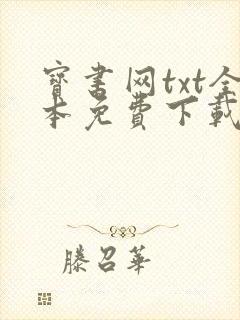 寶書网txt全
本免費下載
滕召華